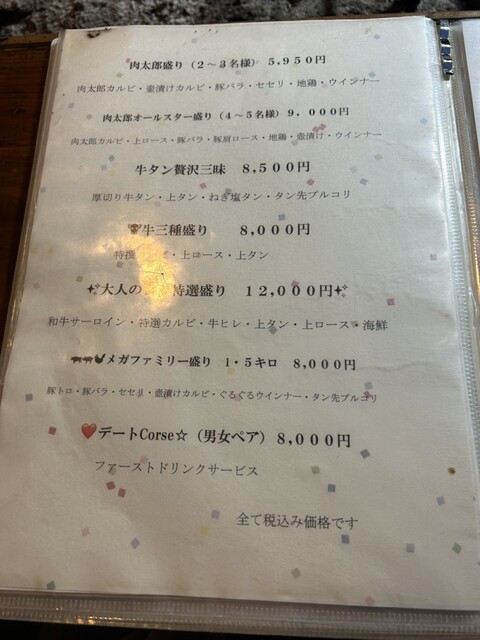 肉太郎盛り（2〜3名様） 5,950円
肉太郎カルビ・壷漬けカルビ・豚バラ・セセリ・地鶏・ウインナー
肉太郎オールスター盛り（4〜5名様）9，000円
肉太郎カルビ・上ロース・豚バラ・豚肩ロース・地鶏・壷漬け・ウインナー
牛タン贅沢三昧 8,500円
厚切り牛タン・上タン・ねぎ塩タン・タン先プルコリ
🐮牛三種盛り 8,000円
特撰 ・上ロース・上タン
✨大人の 特選盛り 12,000円✨
和牛サーロイン・特選カルビ・牛ヒレ・上タン・上ロース・海鮮
🐃🐖🐓メガファミリー盛り 1・5キロ 8,000円
豚トロ・豚バラ・セセリ・壷漬けカルビ・ぐるぐるウインナー・タン先プルコリ
❤️デートCorse☆（男女ペア）8,000円
ファーストドリンクサービス
全て税込み価格です